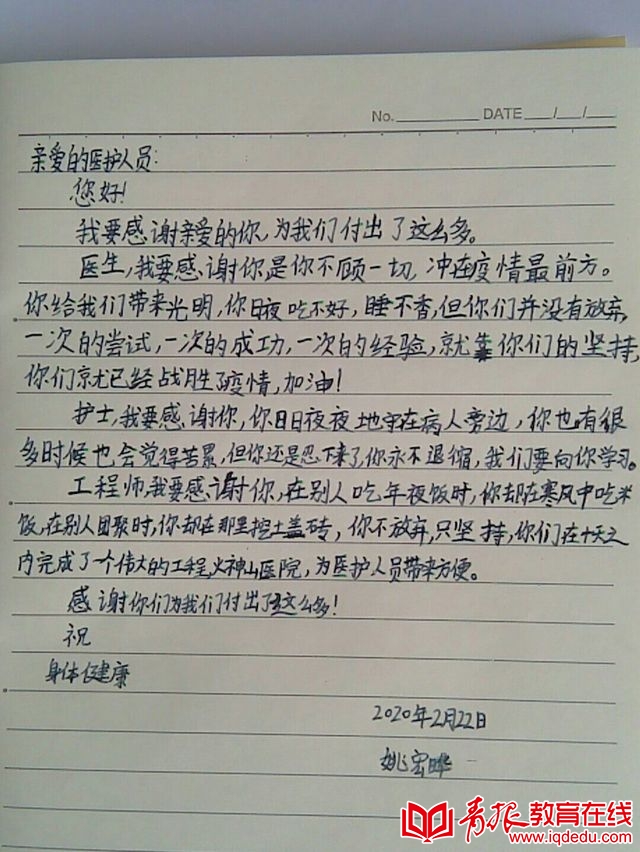 No. DATE / /
亲爱的医护人员:
您好!
我要感谢亲爱的你,为我们付出了这么多。
医生,我要感谢你是你不顾一切,冲在疫情最前方。
你给我们带来光明,你日夜吃不好,睡不香,但你们并没有放弃,
一次的尝试,一次的成功,一次的经验,就 你们的坚持,
你们就已经战胜了疫情,加油!
护士,我要感谢你,你日日夜夜地守在病人旁边,你也有很
多时候也会觉得苦累,但你还是忍下来了,你永不退缩,我们要向你学习。
工程师,我要感谢你,在别人吃年夜饭时,你却在寒风中吃米
饭,在别人团聚时,你却在那里挖土盖砖,你不放弃,只坚持,你们在十天之
内完成了一个伟大的工程火神山医院,为医护人员带来方便。
感谢你们为我们付出了这么多!
祝
身体健康
2020年2月22日
姚宏晔
青报教育在线
www.iqdedu.com